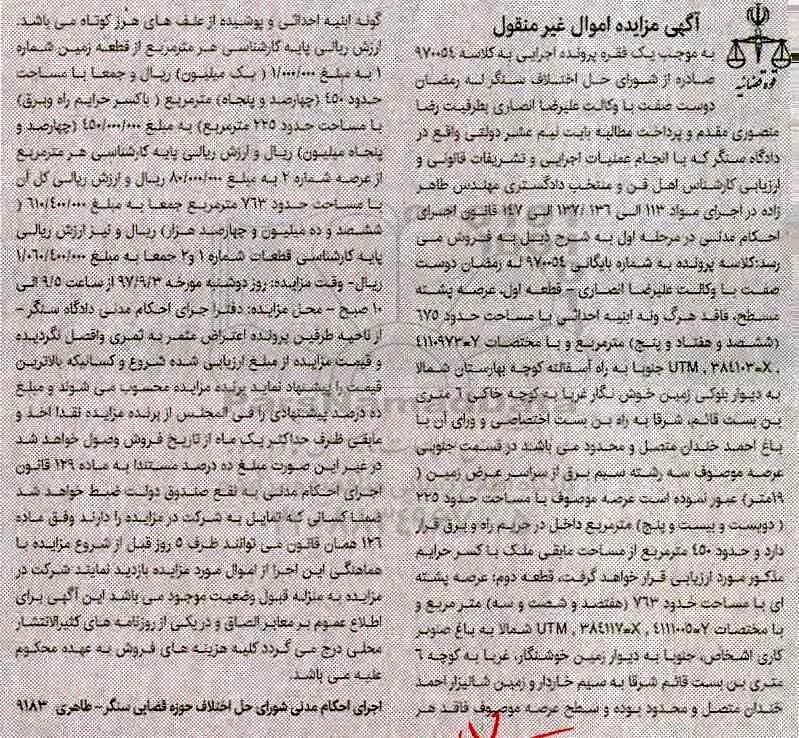 آگهی مزایده اموال غیر منقول
قوه قضائیه
به موجب یک فقره پرونده اجرایی به کلاسه ۹۷۰۰۵۴
صادره از شورای حل اختلاف سنگر له رمضان
دوست صفت با وکالت علیرضا انصاری بطرفیت رضا
منصوری مقدم و پرداخت مطالبه بابت نیم عشر دولتی واقع در
دادگاه سنگر که با انجام عملیات اجرایی و تشریفات قانونی و
ارزیابی کارشناس اهل فن و منتخب دادگستری مهندس طاهر
زاده در اجرای مواد ۱۱۳ الی ۱۳۶ /۱۳۷ الی ۱۴۷ قانون اجرای
احکام مدنی در مرحله اول به شرح ذیل به فروش می
رسد:کلاسه پرونده به شماره بایگانی ۹۷۰۰۵۴ له رمضان دوست
صفت با وکالت علیرضا انصاری – قطعه اول، عرصه پشته
مسطح، فاقد هرگ ونه ابنیه احداثی با مساحت حدود ۶۷۵
(ششصد و هفتاد و پنج) مترمربع و با مختصات Y=۴۱۱۰۹۷۳
, X=۳۸۴۱۰۳ , UTM جنوبا به راه آسفالته کوچه بهارستان شمالا
به دیوار بلوکی زمین خوش نگار غربا به کوچه خاکی ۶ متری
بن بست قائم، شرقا به راه بن بست اختصاصی و ورای آن با
باغ احمد خندان متصل و محدود می باشد در قسمت جنوبی
عرصه موصوف سه رشته سیم برق از سراسر عرض زمین (
۱۹متر) عبور نموده است عرصه موصوف با مساحت حدود ۲۲۵
( دویست و بیست و پنج) مترمربع داخل در حریم راه و برق قرار
دارد و حدود ۴۵۰ مترمربع از مساحت مابقی ملک با کسر حرایم
مذکور مورد ارزیابی قرار خواهد گرفت، قطعه دوم: عرصه پشته
ای با مساحت حدود ۷۶۳ (هفتصد و شصت و سه) متر مربع و
با مختصات Y=۴۱۱۱۰۰۵ , X=۳۸۴۱۱۷ , UTM شمالا به باغ صنوبر
کاری اشخاص، جنوبا به دیوار زمین خوشنگار، غربا به کوچه ۶
متری بن بست قائم شرقا به سیم خاردار و زمین شالیزار احمد
خندان متصل و محدود بوده و سطح عرصه موصوف فاقد هر
گونه ابنیه احداثی و پوشیده از علف های هرز کوتاه می باشد.
ارزش ریالی پایه کارشناسی هر مترمربع از قطعه زمین شماره
۱ به مبلغ ۱/۰۰۰/۰۰۰ ( یک میلیون) ریال و جمعا با مساحت
حدود ۴۵۰ (چهارصد و پنجاه) مترمربع ( باکسر حرایم راه وبرق)
با مساحت حدود ۲۲۵ مترمربع) به مبلغ ۴۵۰/۰۰۰/۰۰۰ (چهارصد و
پنجاه میلیون) ریال و ارزش ریالی پایه کارشناسی هر مترمربع
از عرصه شماره ۲ به مبلغ ۸۰/۰۰۰/۰۰۰ ریال و ارزش ریالی کل آن
با مساحت حدود ۷۶۳ مترمربع جمعا به مبلغ ۶۱۰/۴۰۰/۰۰۰ (
ششصد و ده میلیون و چهارصد هزار) ریال و نیز ارزش ریالی
پایه کارشناسی قطعات شماره ۱ و۲ جمعا به مبلغ ۱/۰۶۰/۴۰۰/۰۰۰
ریال- وقت مزایده: روز دوشنبه مورخه ۹۷/۹/۳ از ساعت ۹/۵ الی
۱۰ صبح – محل مزایده: دفتر اجرای احکام مدنی دادگاه سنگر –
از ناحیه طرفین پرونده اعتراض مثمر به ثمری واصل نگردیده
و قیمت مزایده از مبلغ ارزیابی شده شروع و کسانیکه بالاترین
قیمت را پیشنهاد نماید برنده مزایده محسوب می شوند و مبلغ
ده درصد پیشنهادی را فی المجلس از برنده مزایده نقدا اخذ و
مابقی ظرف حداکثر یک ماه از تاریخ فروش وصول خواهد شد
در غیر این صورت مبلغ ده درصد مستندا به ماده ۱۲۹ قانون
اجرای احکام مدنی به نفع صندوق دولت ضبط خواهد شد
ضمنا کسانی که تمایل به شرکت در مزایده را دارند وفق ماده
۱۲۶ همان قانون می توانند ظرف ۵ روز قبل از شروع مزایده با
هماهنگی این اجرا از اموال مورد مزایده بازدید نمایند شرکت در
مزایده به منزله قبول وضعیت موجود می باشد این آگهی برای
اطلاع عموم بر معابر الصاق و در یکی از روزنامه های کثیرالانتشار
محلی درج می گردد کلیه هزینه های فروش به عهده محکوم
علیه می باشد.
اجرای احکام مدنی شورای حل اختلاف حوزه قضایی سنگر- طاهری ۹۱۸۳